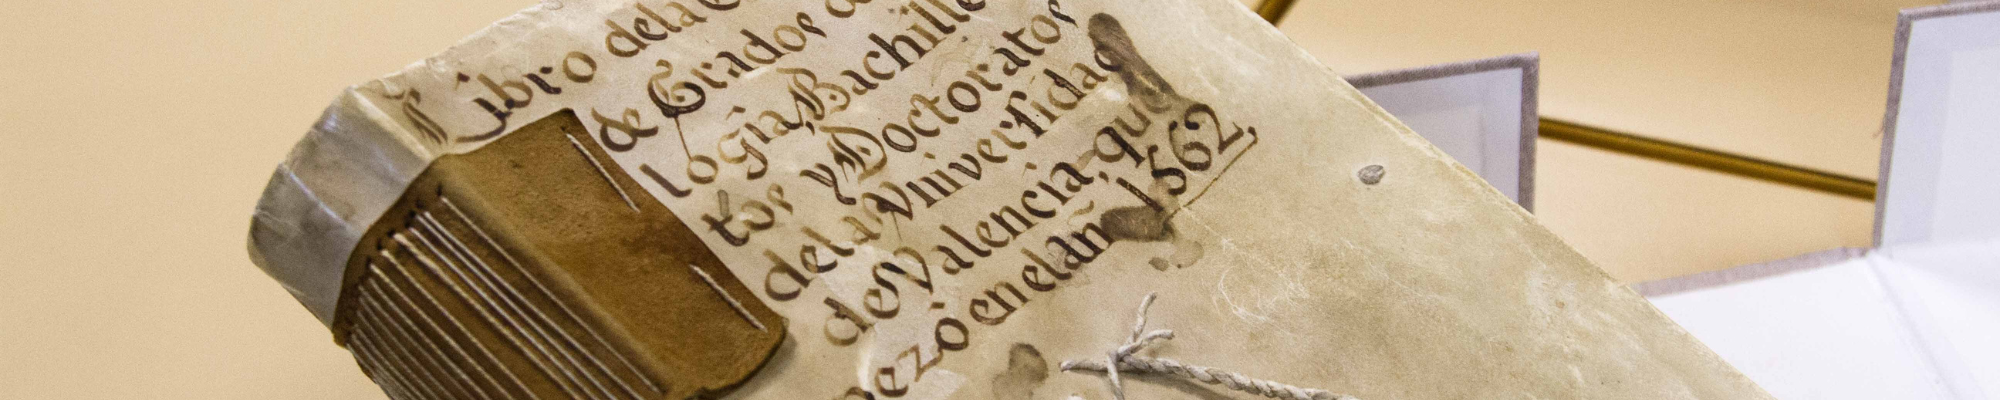 Libro dela
de Grados
logia, Bachille
tos y Doctoratos
dela Vniversidad
de Valencia, que
pezò en el añ 1562,